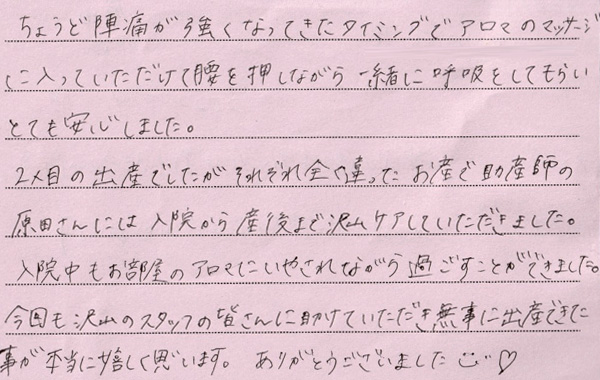 ちょうど陣痛が強くなってきたタイミングでアロマのマッサージ
に入っていただけて腰を押しながら一緒に呼吸をしてもらい
とても安心しました。
2人目の出産でしたがそれぞれ全く違ったお産で助産師の
原田さんには入院から産後まで沢山ケアしていただきました。
入院中もお部屋のアロマにいやされながら過ごすことができました。
今回も沢山のスタッフの皆さんに助けていただき無事に出産できた
事が本当に嬉しく思います。 ありがとうございました